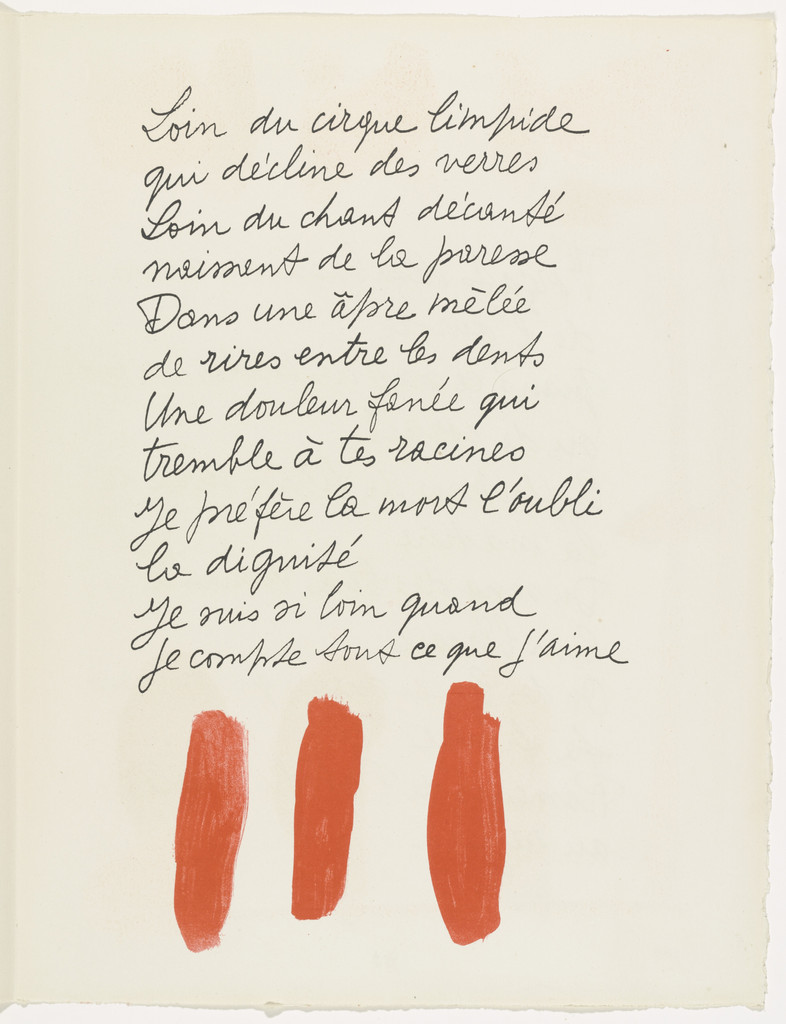 Loin du cirque limpide
qui décline des verres
Loin du chant décanté
naissent de la paresse
Dans une âpre mêlée
de rires entre les dents
Une douleur fanée qui
tremble à tes racines
Je préfère la mort l'oubli
la dignité
Je suis si loin quand
je compte tout ce que j'aime